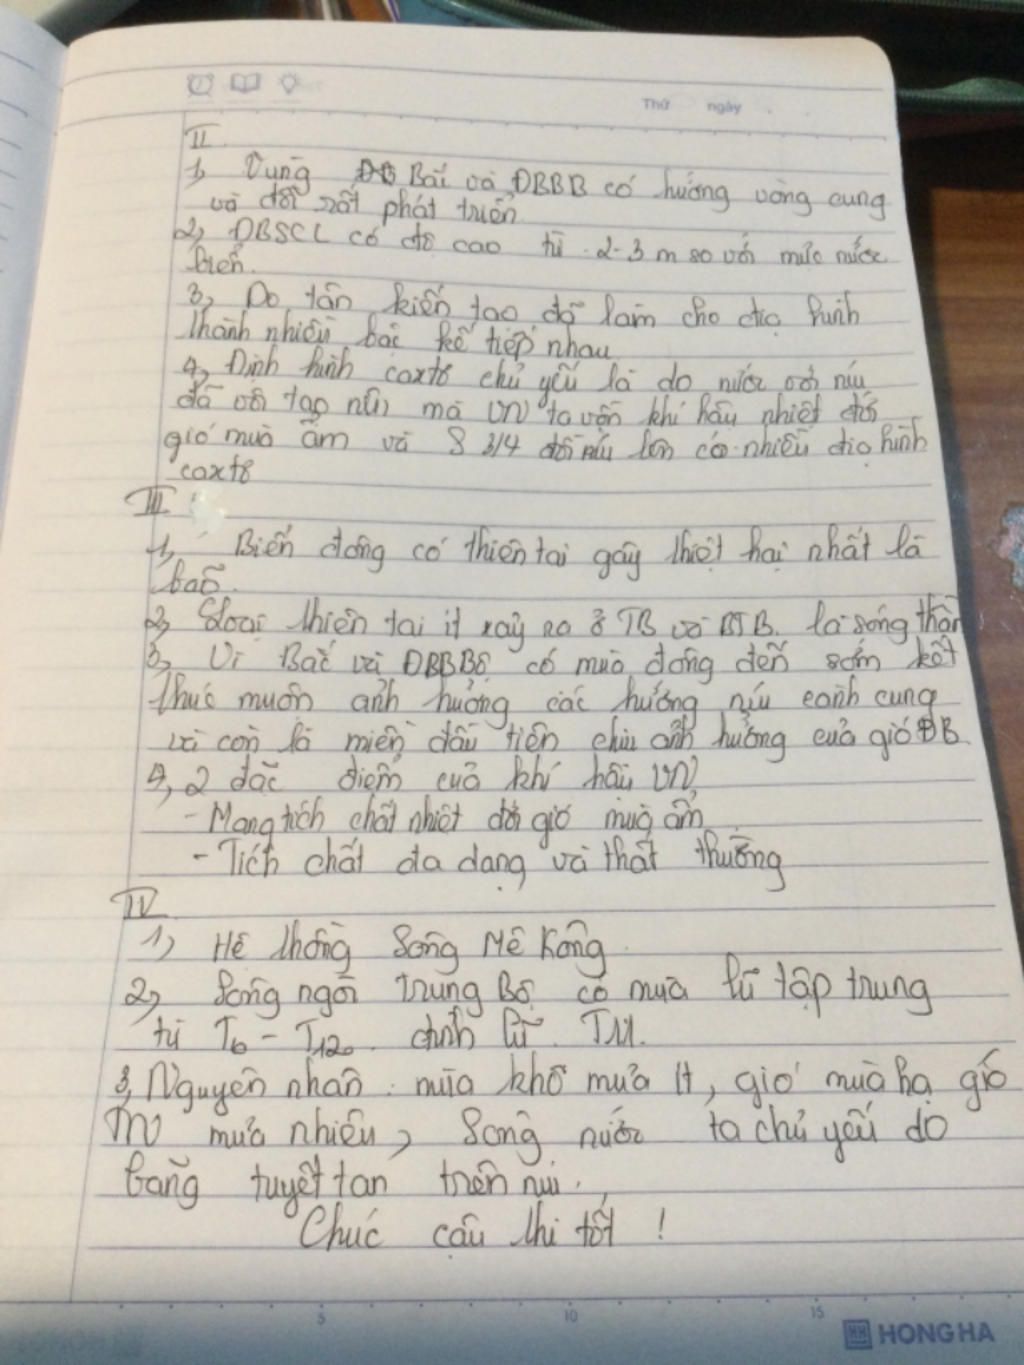 Thứ ngày
II
1, Vùng ĐB Bắc và ĐBBB có hướng vòng cung
và đồi rất phát triển
2, ĐBSCL có độ cao từ 2-3 m so với mức nước
biển.
3, Do tân kiến tạo đã làm cho địa hình
thành nhiều bậc kế tiếp nhau
4, Định hình caxtơ chủ yếu là do nước với núi
đá vôi tạo nên mà VN ta vốn khí hậu nhiệt đới
gió mùa ẩm và S 3/4 đồi núi lên có nhiều địa hình
caxtơ
III
1, Biển đông có thiên tai gây thiệt hại nhất là
bão.
2, Loại thiên tai ít xảy ra ở TB và BTB là sóng thần
3, Vì Bắc và ĐBBBộ có mùa đông đến sớm kết
thúc muộn ảnh hưởng các hướng núi cánh cung
và còn là miền đầu tiên chịu ảnh hưởng của gió ĐB
4, 2 đặc điểm của khí hậu VN,
- Mang tích chất nhiệt đới gió mùa ẩm
- Tích chất đa dạng và thất thường
IV
1) Hệ thống Sông Mê Kông
2, Sông ngòi Trung Bộ có mùa lũ tập trung
từ T6 - T12. đỉnh lũ T11.
3, Nguyên nhân: mùa khô mưa ít, gió mùa hạ gió
TN mưa nhiều, Sông nước ta chủ yếu do
băng tuyết tan trên núi.
Chúc cậu thi tốt !
5 10 15
HONG HA